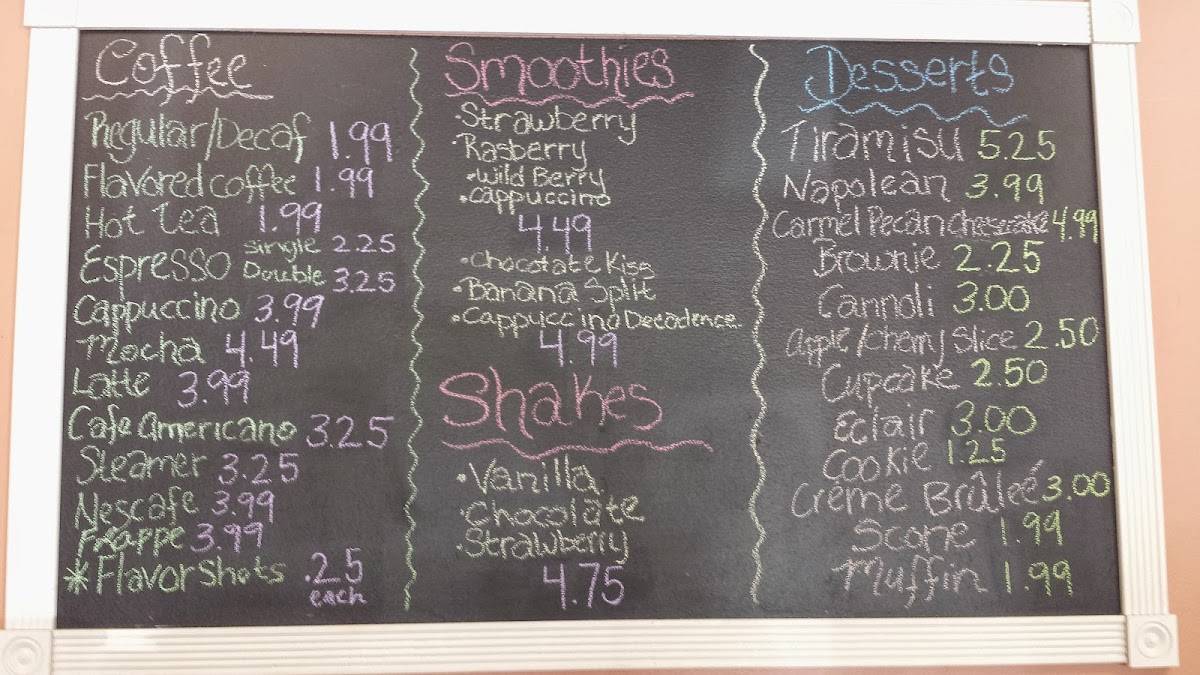 Coffee
Regular/Decaf 1.99
Flavored coffee 1.99
Hot Tea 1.99
Espresso single 2.25
Double 3.25
Cappuccino 3.99
Mocha 4.49
Latte 3.99
Cafe Americano 3.25
Steamer 3.25
Nescafe 3.99
Frappe 3.99
*Flavor Shots .25
each
Smoothies
·Strawberry
·Rasberry
·Wild Berry
·cappuccino
4.49
·Chocolate Kiss
·Banana Split
·Cappuccino Decadence
4.99
Shakes
·Vanilla
·Chocolate
·Strawberry
4.75
Desserts
Tiramisu 5.25
Napolean 3.99
Carmel Pecan Cheesecake 4.99
Brownie 2.25
Cannoli 3.00
Apple/cherry Slice 2.50
Cupcake 2.50
Eclair 3.00
Cookie 1.25
Créme Brûleé 3.00
Scone 1.99
Muffin 1.99